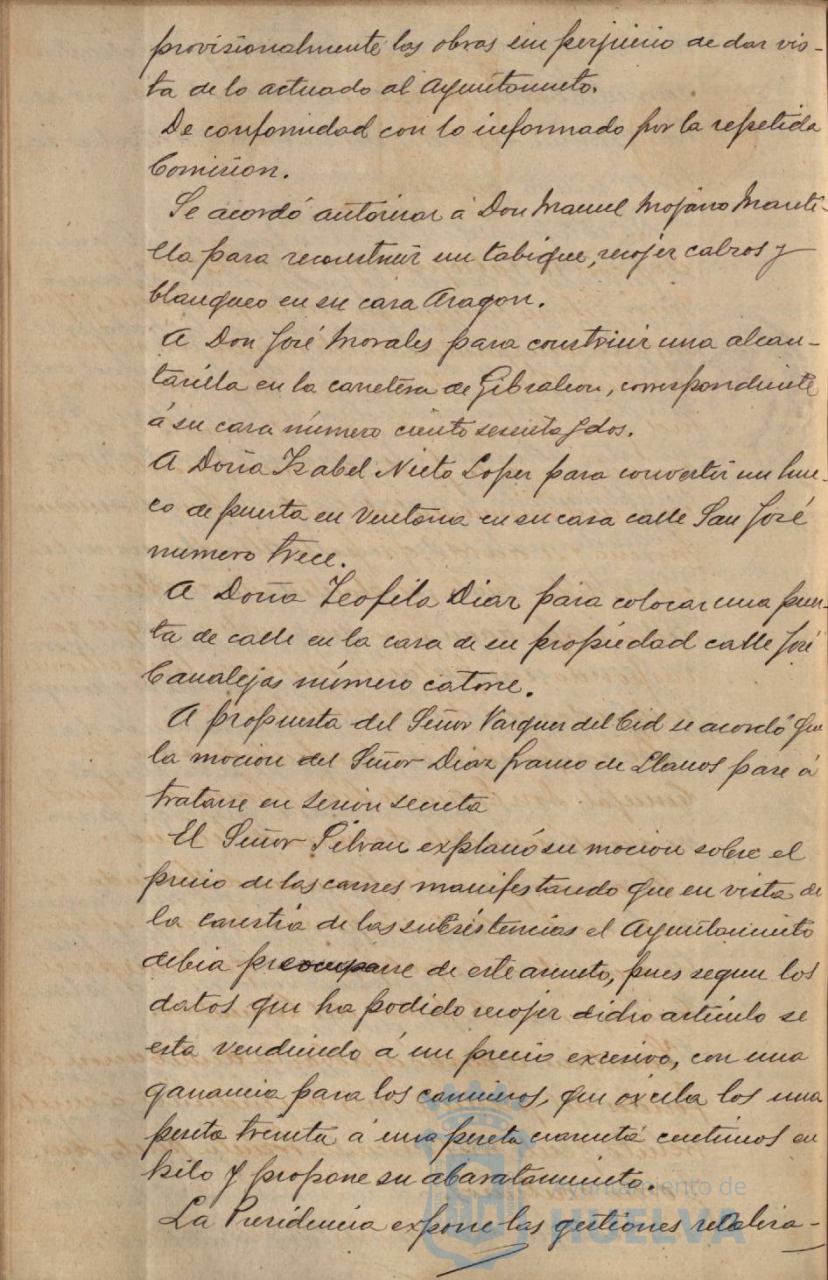 provisionalmente las obras sin perjuicio de dar vis-
ta de lo actuado al Ayuntamiento.
De conformidad con lo informado por la repetida
Comision.
Se acordó autorizar á Don Manuel Mojarro Manti-
lla para reconstruir un tabique, recojer calzos y
blanqueo en su casa Aragon.
A Don José Morales para construir una alcan-
tarilla en la carretera de Gibraleon, correspondiente
á su casa número ciento sesenta y dos.
A Doña Isabel Nieto Lopez para convertir un hue-
co de puerta en ventana en su casa calle San José
numero trece.
A Doña Teofila Diaz para colocar una puer-
ta de calle en la casa de su propiedad calle José
Canalejas número catorce.
A propuesta del Señor Vazquez del Cid se acordó que
la mocion del Señor Diaz franco de Llanos pase á
tratarse en sesion secreta
El Señor Pilvan explanó su mocion sobre el
precio de las carnes manifestando que en vista de
la carestia de las subsistencias el Ayuntamiento
debia preocuparse de este asunto, pues segun los
datos que ha podido recojer dicho articulo se
esta vendiendo á un precio excesivo, con una
ganancia para los carniceros, que oscila los una
peseta treinta á una peseta cuarenta centimos en
kilo y propone su abaratamiento.
La Presidencia expone las gestiones realiza-
Ayuntamiento de
HUELVA